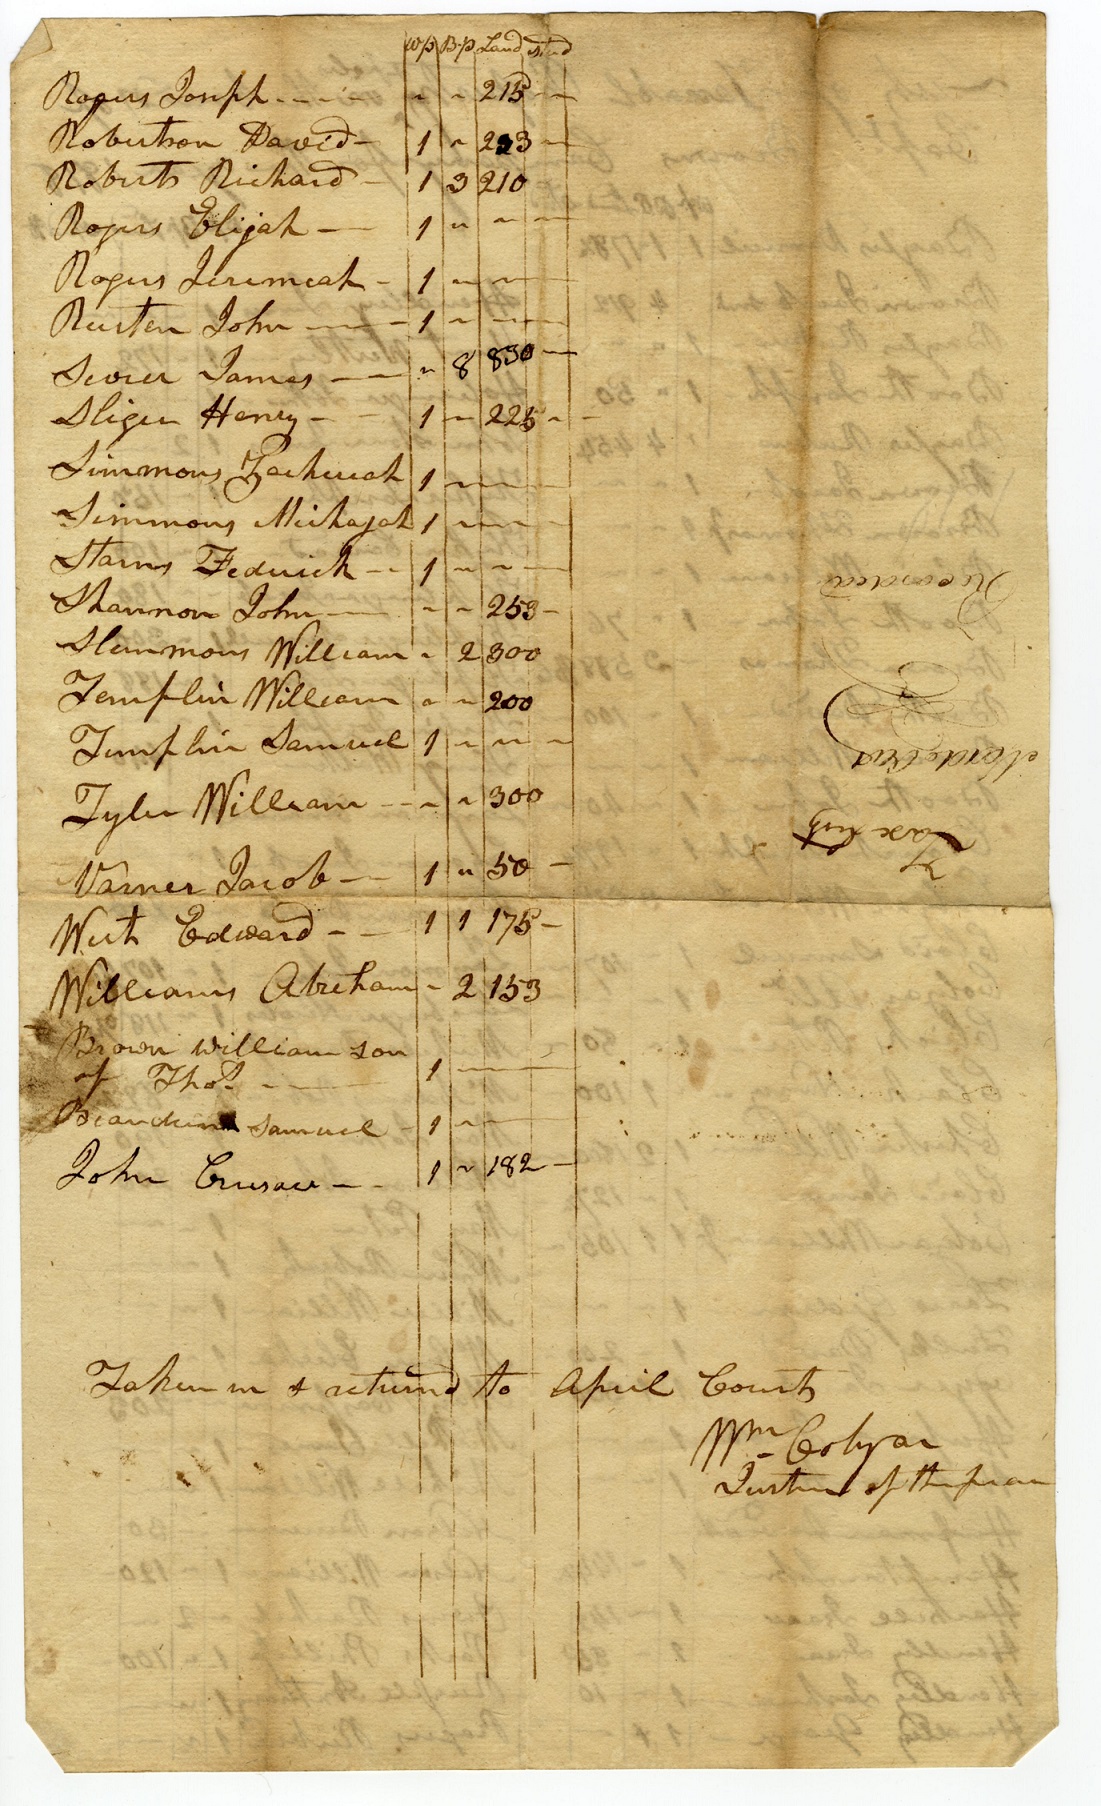 wp B.p Land stud
Rogers Joseph - - - - " " 215 - -
Robertson David - 1 " 223 -
Roberts Richard - 1 3 210
Rogers Elijah - 1 " " "
Rogers Jeremeah - 1 " " -
Rusten John - - - 1 " - -
Sevier James - - " 8 830 -
Sliger Henry - - 1 " 225 - -
Simmons Zachariah 1 " " -
Simmons Michajah 1 " " "
Starns Fedrick - - 1 " " -
Shannon John - " " 253 -
Slemmons William " 2 300
Templin William " " 200
Templin Samuel 1 " " "
Tyler William - - " " 300
Varner Jacob - - 1 " 50 -
West Edward - - 1 1 175 -
Williams Abreham - 2 153
Brown William son
of Thos. - - 1 - - -
Samuel - 1 " -
John Crusaw - - 1 " 182 -
Taken in & returnd to April Court
Wm Colyar
Justice of the peace
Tax list
Recorded